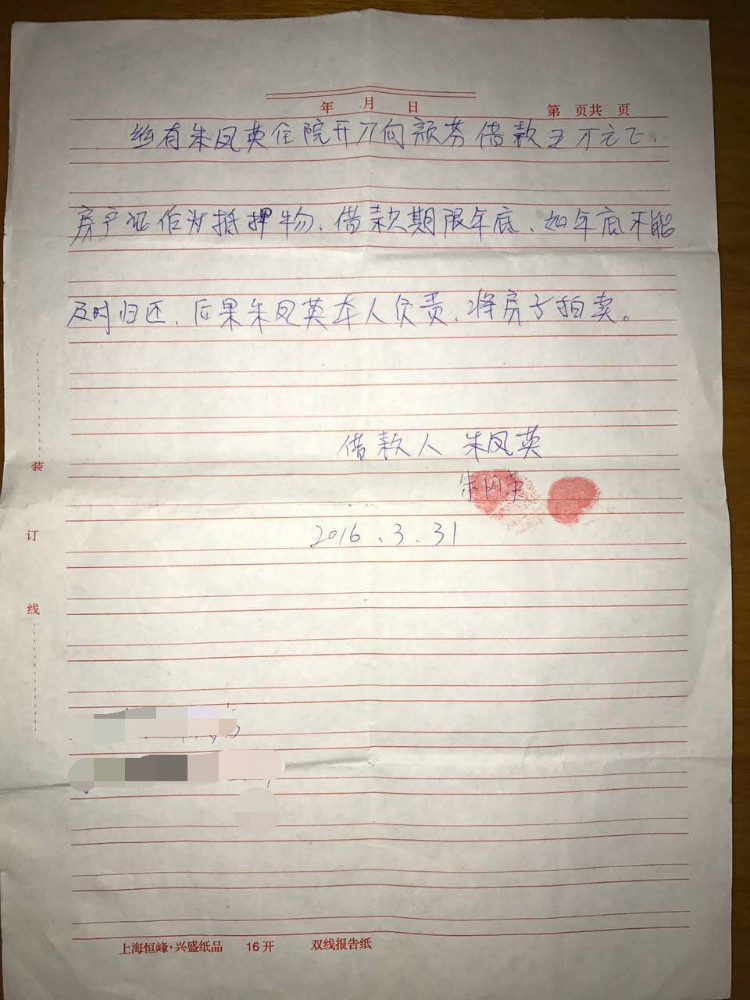 年 月 日
第 页共 页
兹有朱凤英住院开刀向颜芬借款五万元正、
房产证作为抵押物、借款期限年底、如年底不能
及时归还、后果朱凤英本人负责、将房子拍卖。
借款人 朱凤英
朱凤英
2016.3.31
装
订
线
上海恒峰·兴盛纸品 16开 双线报告纸